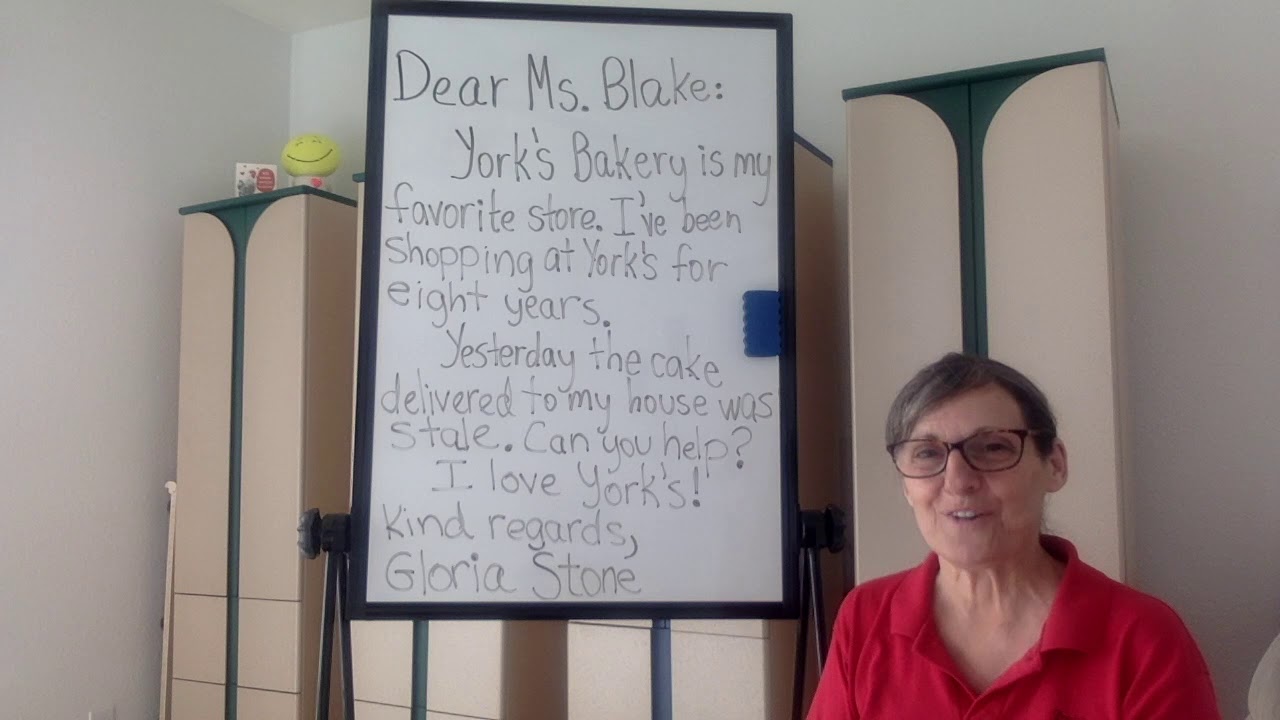 Dear Ms. Blake:
York's Bakery is my
favorite store. I've been
shopping at York's for
eight years.
Yesterday the cake
delivered to my house was
stale. Can you help?
I love York's!
Kind regards,
Gloria Stone